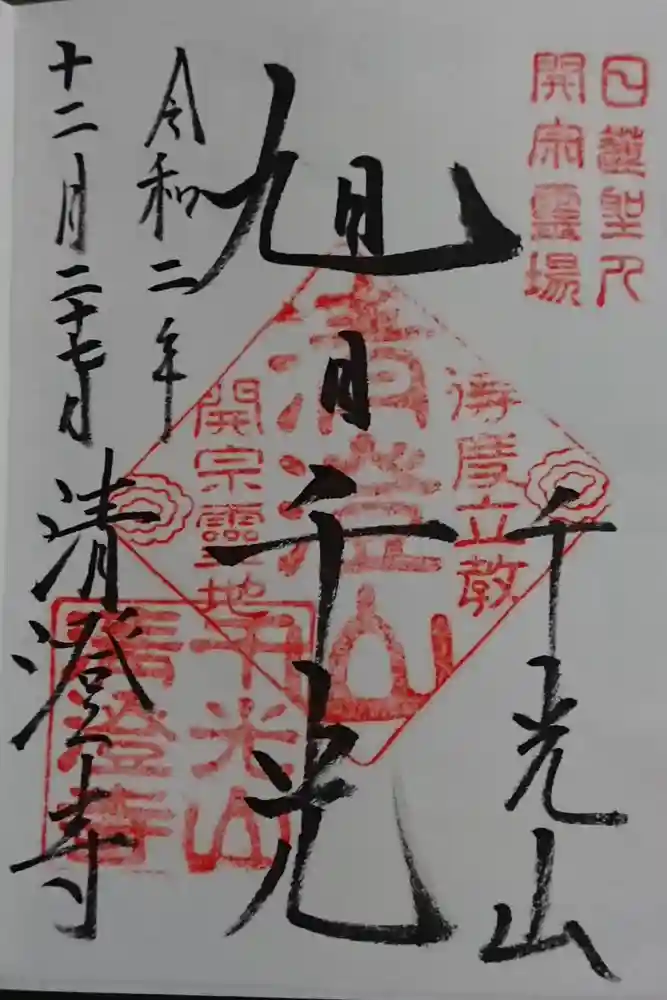 日蓮聖人
開宗靈場
千光山
得度立教
清澄山
開宗靈地
旭日千光
令和二年
十二月二十七日
清澄寺
千光山
清澄寺